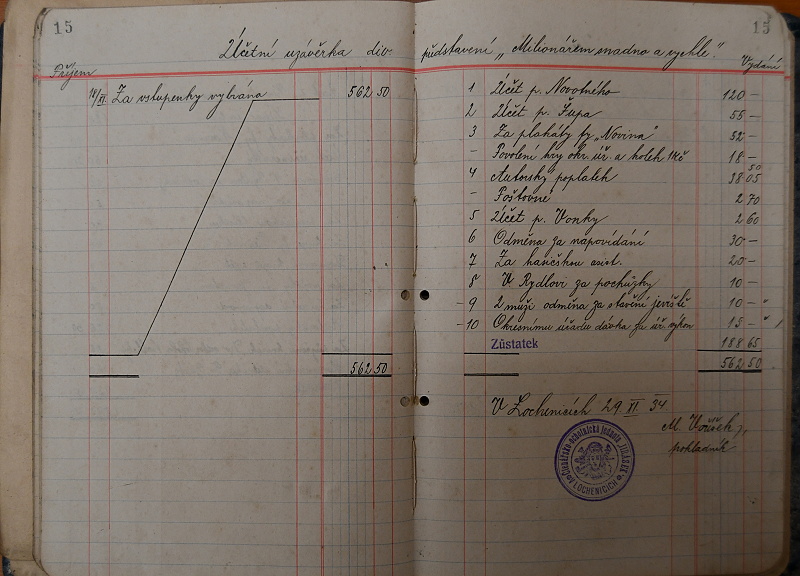 15
15
Účetní uzávěrka div. představení „Milionářem snadno a rychle".
Příjem
Vydání
18/XI. Za vstupenky vybráno 562 50
562 50
1 Účet p. Novotného 120 —
2 Účet p. Šupa 55 —
3 Za plakáty fy „Novina" 52 —
– Povolení hry okr. úř. a kolek 1 Kč 18 —
4 Autorský poplatek 38 05
50
– Poštovné 2 70
5 Účet p. Vonky 2 60
6 Odměna za napovídání 30 —
7 Za 20 —
8 V. Rydlovi za pochůzky 10 —
– 9 2 muži odměna za stavění jeviště 10 — "
– 10 Okresnímu úřadu dávka za úř. výkon 15 — "
Zůstatek 188 65
562 50
V Lochenicích 29 XI. 34
M. Voříšek,
pokladník
Čtenářsko-ochotnická jednota JIRÁSEK
V LOCHENICÍCH